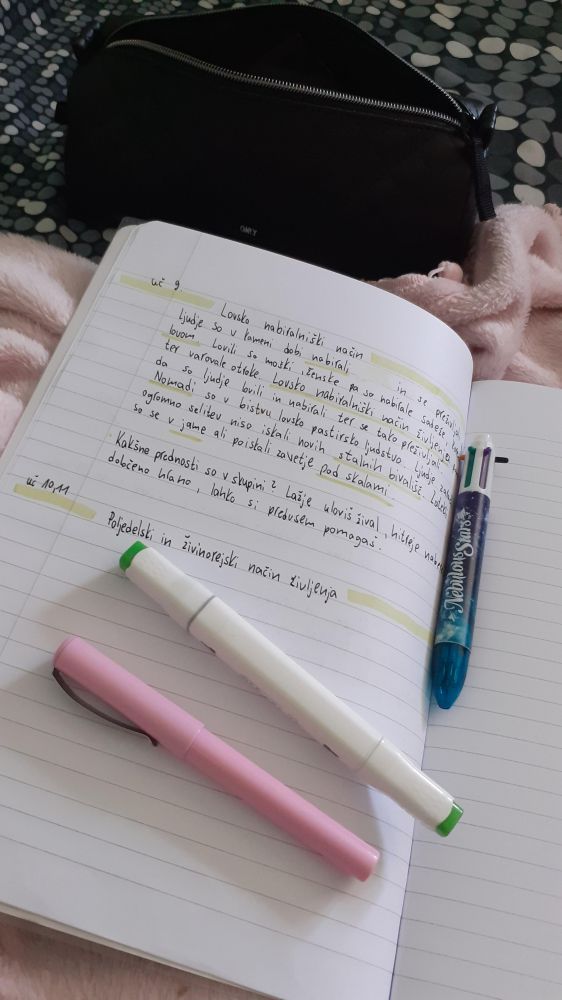 ONLY
uč 9
Lovsko nabiralniški način
ljudje so v kameni dobi nabirali in se
lovom. Lovili so moški, ženske pa so nabirale sadeže
ter varovale otroke. Lovsko nabiralniški način življenja
da so ljudje lovili in nabirali ter se tako preživljali.
Nomadi so v bistvu lovsko pastirsko ljudstvo. Ljudje
ogromno selitev niso iskali novih stalnih bivališč.
so se v jame ali poiskali zavetje pod skalami.
Kakšne prednosti so v skupini? Lažje uloviš žival, hitreje
določeno hrano, lahko si predvsem pomagaš.
uč 10,11
Poljedelski in živinorejski način življenja
Nebulous Stars